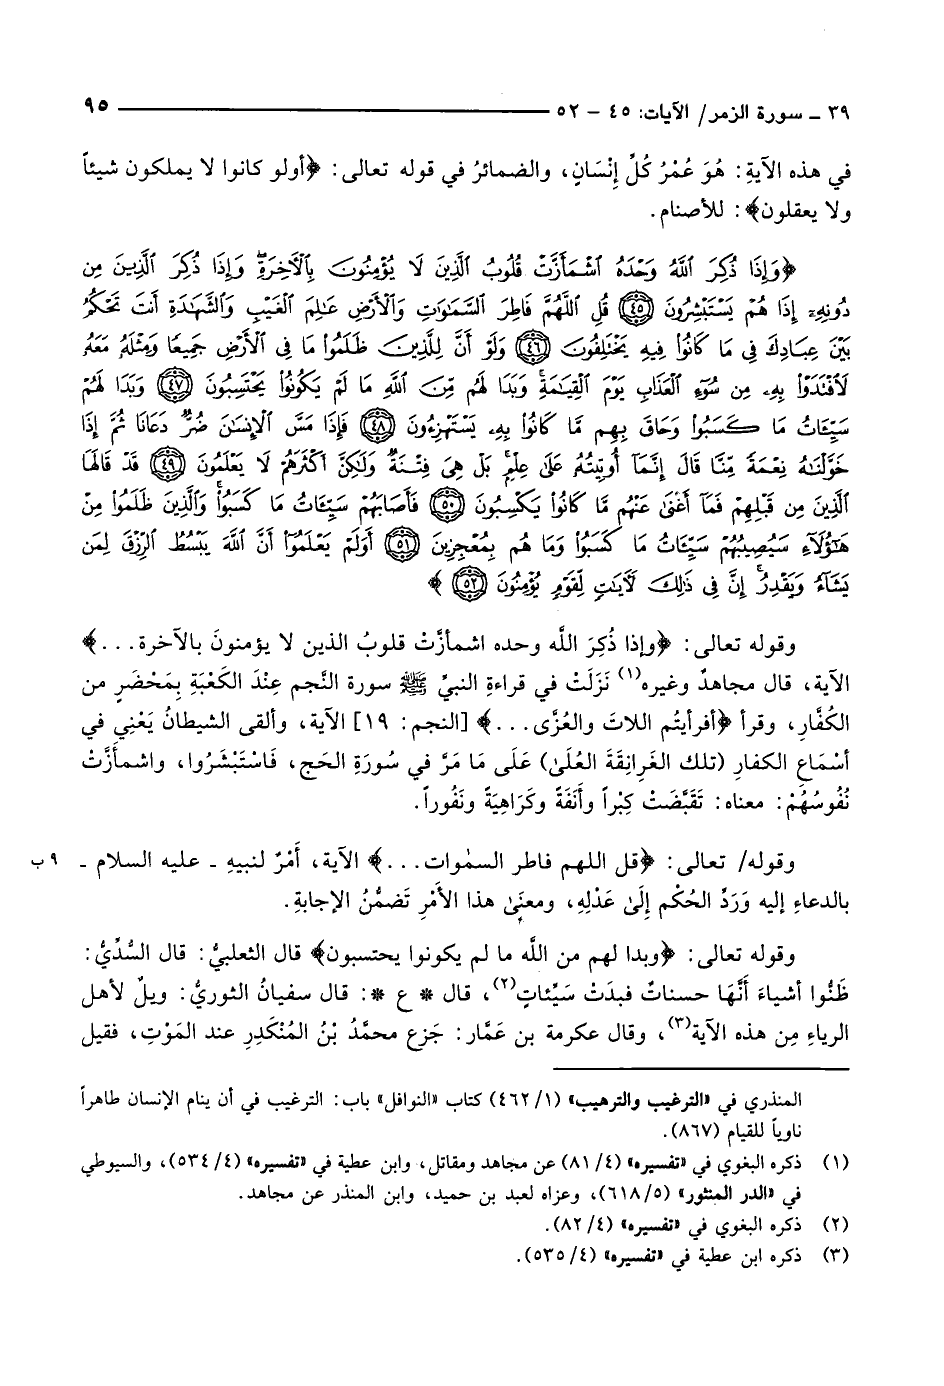 ٣٩ ـ سورة الزمر/ الآيات: ٤٥ - ٥٢ ٩٥
في هذه الآيةِ: هُوَ عُمْرُ كُلِّ إِنْسَانٍ، والضمائرُ في قوله تعالى: ﴿أولو كانوا لا يملكون شيئاً
ولا يعقلون﴾: للأصنام.
﴿وَإِذَا ذُكِرَ ٱللَّهُ وَحْدَهُ ٱشْمَأَزَّتْ قُلُوبُ ٱلَّذِينَ لَا يُؤْمِنُونَ بِٱلْآخِرَةِ وَإِذَا ذُكِرَ ٱلَّذِينَ مِن
دُونِهِۦ إِذَا هُمْ يَسْتَبْشِرُونَ ٤٥ قُلِ ٱللَّهُمَّ فَاطِرَ ٱلسَّمَٰوَٰتِ وَٱلْأَرْضِ عَٰلِمَ ٱلْغَيْبِ وَٱلشَّهَٰدَةِ أَنتَ تَحْكُمُ
بَيْنَ عِبَادِكَ فِى مَا كَانُوا۟ فِيهِ يَخْتَلِفُونَ ٤٦ وَلَوْ أَنَّ لِلَّذِينَ ظَلَمُوا۟ مَا فِى ٱلْأَرْضِ جَمِيعًا وَمِثْلَهُۥ مَعَهُۥ
لَٱفْتَدَوْا۟ بِهِۦ مِن سُوٓءِ ٱلْعَذَابِ يَوْمَ ٱلْقِيَٰمَةِ وَبَدَا لَهُم مِّنَ ٱللَّهِ مَا لَمْ يَكُونُوا۟ يَحْتَسِبُونَ ٤٧ وَبَدَا لَهُمْ
سَيِّـَٔاتُ مَا كَسَبُوا۟ وَحَاقَ بِهِم مَّا كَانُوا۟ بِهِۦ يَسْتَهْزِءُونَ ٤٨ فَإِذَا مَسَّ ٱلْإِنسَٰنَ ضُرٌّ دَعَانَا ثُمَّ إِذَا
خَوَّلْنَٰهُ نِعْمَةً مِّنَّا قَالَ إِنَّمَآ أُوتِيتُهُۥ عَلَىٰ عِلْمٍۭ بَلْ هِىَ فِتْنَةٌ وَلَٰكِنَّ أَكْثَرَهُمْ لَا يَعْلَمُونَ ٤٩ قَدْ قَالَهَا
ٱلَّذِينَ مِن قَبْلِهِمْ فَمَآ أَغْنَىٰ عَنْهُم مَّا كَانُوا۟ يَكْسِبُونَ ٥٠ فَأَصَابَهُمْ سَيِّـَٔاتُ مَا كَسَبُوا۟ وَٱلَّذِينَ ظَلَمُوا۟ مِنْ
هَٰٓؤُلَآءِ سَيُصِيبُهُمْ سَيِّـَٔاتُ مَا كَسَبُوا۟ وَمَا هُم بِمُعْجِزِينَ ٥١ أَوَلَمْ يَعْلَمُوٓا۟ أَنَّ ٱللَّهَ يَبْسُطُ ٱلرِّزْقَ لِمَن
يَشَآءُ وَيَقْدِرُ إِنَّ فِى ذَٰلِكَ لَآيَٰتٍ لِّقَوْمٍ يُؤْمِنُونَ ٥٢ ﴾
وقوله تعالى: ﴿وإذا ذُكِرَ اللَّه وحده اشمأزَّتْ قلوبُ الذين لا يؤمنونَ بالآخرة...﴾
الآية، قال مجاهدٌ وغيره(١) نَزَلَتْ في قراءةِ النبيِّ ﷺ سورة النَّجم عِنْدَ الكَعْبَةِ بِمَحْضَرٍ من
الكُفَّارِ، وقرأ ﴿أفرأيتُم اللاتَ والعُزَّى...﴾ [النجم: ١٩] الآية، وألقى الشيطانُ يَعْنِي في
أسْمَاعِ الكفارِ (تلك الغَرانِقَةَ العُلَىٰ) عَلَى مَا مَرَّ في سُورَةِ الحَج، فَاسْتَبْشَرُوا، واشمأزَّتْ
نُفُوسُهُمْ: معناه: تَقَبَّضَتْ كِبْراً وأَنَفَةً وكَرَاهِيَةً ونَفُوراً.
وقوله/ تعالى: ﴿قل اللهم فاطر السمٰوات...﴾ الآية، أَمْرٌ لنبيهِ ـ عليه السلام ـ ٩ ب
بالدعاءِ إليه وَرَدِّ الحُكْم إلَىٰ عَدْلِهِ، ومعنىٰ هذا الأَمْرِ تَضمُّنُ الإجابةِ.
وقوله تعالى: ﴿وبدا لهم من اللَّه ما لم يكونوا يحتسبون﴾ قال الثعلبيُّ: قال السُّدِّيُّ:
ظَنُّوا أشياءَ أنَّهَا حسناتٌ فبدَتْ سَيِّئاتٍ(٢)، قال * ع *: قال سفيانُ الثوريُّ: ويلٌ لأهل
الرياءِ مِن هذه الآية(٣)، وقال عكرمة بن عَمَّار: جَزِعِ محمَّدُ بْنُ المُنْكَدِرِ عند المَوْتِ، فقيل
المنذري في «الترغيب والترهيب» (١/ ٤٦٢) كتاب «النوافل» باب: الترغيب في أن ينام الإنسان طاهراً
ناوياً للقيام (٨٦٧).
(١) ذكره البغوي في «تفسيره» (٤/ ٨١) عن مجاهد ومقاتل، وابن عطية في «تفسيره» (٤/ ٥٣٤)، والسيوطي
في «الدر المنثور» (٥/ ٦١٨)، وعزاه لعبد بن حميد، وابن المنذر عن مجاهد.
(٢) ذكره البغوي في «تفسيره» (٤/ ٨٢).
(٣) ذكره ابن عطية في «تفسيره» (٤/ ٥٣٥).